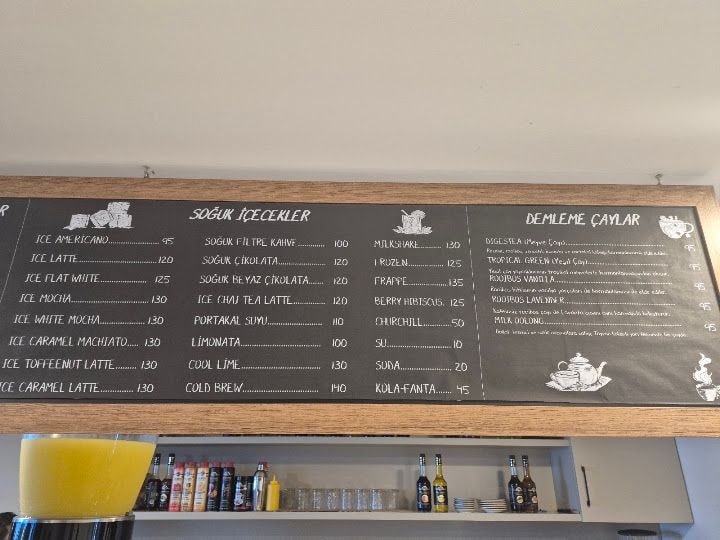 R
SOĞUK İÇECEKLER
ICE AMERICANO 95
ICE LATTE 120
ICE FLAT WHITE 125
ICE MOCHA 130
ICE WHITE MOCHA 130
ICE CARAMEL MACHIATO 130
ICE TOFFEENUT LATTE 130
ICE CARAMEL LATTE 130
SOĞUK FİLTRE KAHVE 100
SOĞUK ÇİKOLATA 120
SOĞUK BEYAZ ÇİKOLATA 120
ICE CHAI TEA LATTE 120
PORTAKAL SUYU 110
LİMONATA 100
COOL LİME 130
COLD BREW 140
MİLKSHAKE 130
FROZEN 125
FRAPPE 135
BERRY HIBISCUS 125
CHURCHILL 50
SU 10
SODA 20
KOLA-FANTA 45
DEMLEME ÇAYLAR
DIGESTEA (Meyve Çayı) 95
TROPICAL GREEN (Yeşil Çay) 95
ROOIBUS VANILLA 95
ROOIBUS LAVENDER 95
MILK OOLONG 95